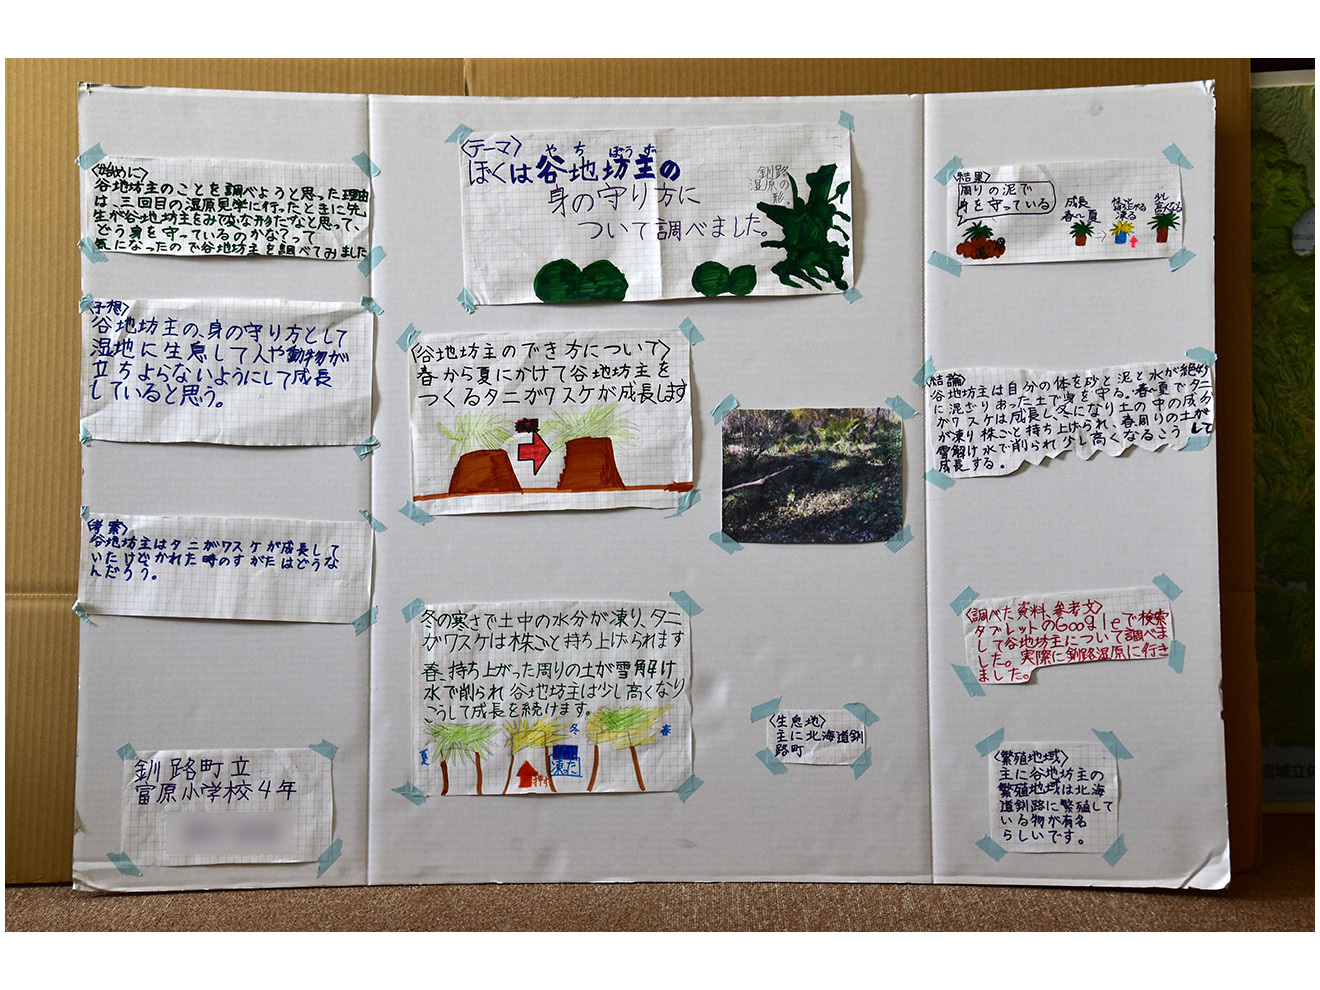 〈始めに〉
谷地坊主のことを調べようと思った理由
は、三回目の湿原見学に行ったときに先
生が谷地坊主をみて変な形だなと思って、
どう身を守っているのかなぁって
気になったので谷地坊主を調べてみました
〈予想〉
谷地坊主の、身の守り方として
湿地に生息して人や動物が
立ちよらないようにして成長
していると思う。
〈考察〉
谷地坊主はタニガワスゲが成長して
いたけどかれた時のすがたはどうな
んだろう。
釧路町立
富原小学校4年
〈テーマ〉
やちぼうず
ぼくは谷地坊主の
身の守り方に
ついて調べました。
釧路
湿原の
形
〈谷地坊主のでき方について〉
春から夏にかけて谷地坊主を
つくるタニガワスゲが成長します
冬の寒さで土中の水分が凍り、タニ
ガワスゲは株ごと持ち上げられます
春、持ち上がった周りの土が雪解け
水で削られ谷地坊主は少し高くなり
こうして成長を続けます。
夏
冬
春
凍った
〈生息地〉
主に北海道釧
路町
〈結果〉
周りの泥で
身を守っている
成長
春〜夏
凍る
少し
高くなる
〈結論〉
谷地坊主は自分の体を砂と泥と水が絶妙
に混ざりあった土で身を守る。春〜夏でタニ
ガワスゲは成長し、冬になり土の中の成分
が凍り株ごと持ち上げられ、春周りの土が
雪解け水で削られ少し高くなるこうして
成長する。
〈調べた資料、参考文〉
タブレットのGoogleで検索
して谷地坊主について調べま
した。実際に釧路湿原に行き
ました。
〈繁殖地域〉
主に谷地坊主の
繁殖地域は北海
道釧路に繁殖して
いる物が有名
らしいです。
流域立体